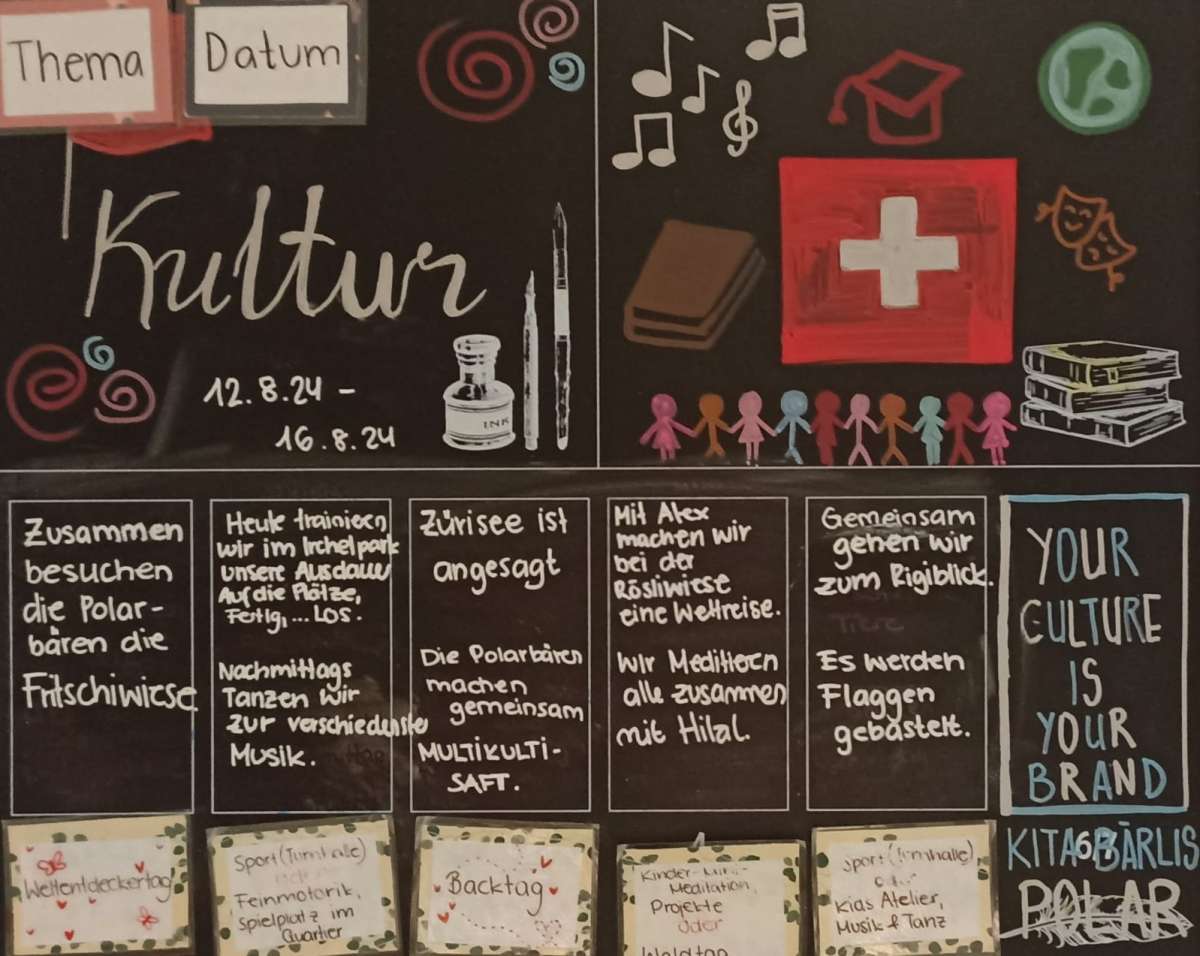 Thema
Datum
Kultur
12.8.24 -
16.8.24
INK
Zusammen
besuchen
die Polar-
bären die
Fritschiwiese
Heute trainieren
wir im Irchelpark
unsere Ausdauer
Auf die Plätze,
Fertig,... Los.
Nachmittags
Tanzen wir
zur verschiedenster
Musik.
Zürisee ist
angesagt
Die Polarbären
machen
gemeinsam
MULTIKULTI-
SAFT.
Mit Alex
machen wir
bei der
Rösliwiese
eine Weltreise.
Wir Meditieren
alle zusammen
mit Hilal.
Gemeinsam
gehen wir
zum Rigiblick.
Tiere
Es werden
Flaggen
gebastelt.
YOUR
CULTURE
IS
YOUR
BRAND
Weltentdeckertag
Sport (Turnhalle)
oder
Feinmotorik,
Spielplatz im
Quartier
Backtag
Kinder-
Meditation,
Projekte
oder
Waldtag
Sport (Turnhalle)
oder
Kids Atelier,
Musik & Tanz
KITA BÄRLIS
POLAR